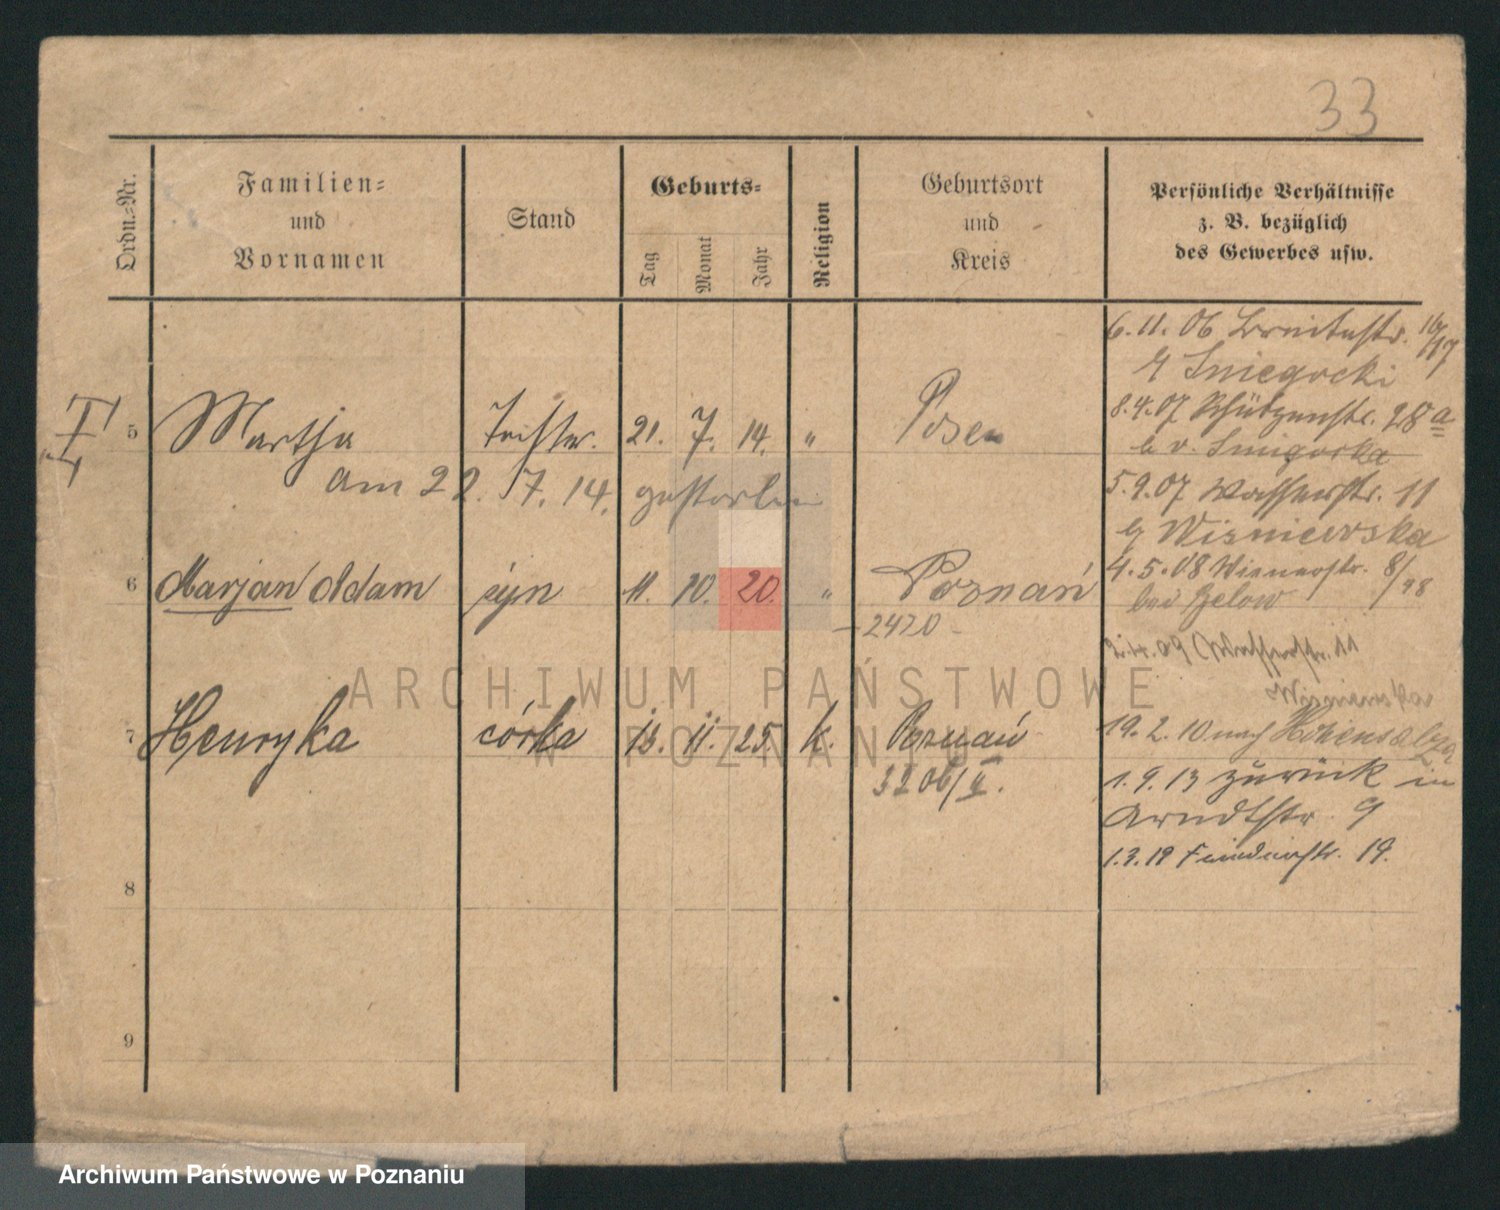 33
Ordn.=Nr.
Familien=
und
Vornamen
Stand
Geburts=
Tag
Monat
Jahr
Religion
Geburtsort
und
Kreis
Persönliche Verhältnisse
z. B. bezüglich
des Gewerbes usw.
5 Martha 21. 7. 14. " Posen
am 22. 7. 14. gestorben
6 Marjan Adam syn 11. 10. 20. " Poznań
- 2420 -
7 Henryka córka 13. 11. 25. k. Poznań
3206/II.
8
9
6.11.06 Breitestr. 16/17
Sniegocki
8.4.07 Schützenstr. 28a
b v. Snigorka
5.9.07 Wasserstr. 11
b Wisniewska
4.5.08 Wienerstr. 8/
bei Zelow
09 Wasserstr. 11
Wisniewska
19.2.10 nach Hohensalza
1.9.13 zurück in
Arndtstr. 9
1.3.19 19.
ARCHIWUM PAŃSTWOWE
W POZNANIU
Archiwum Państwowe w Poznaniu